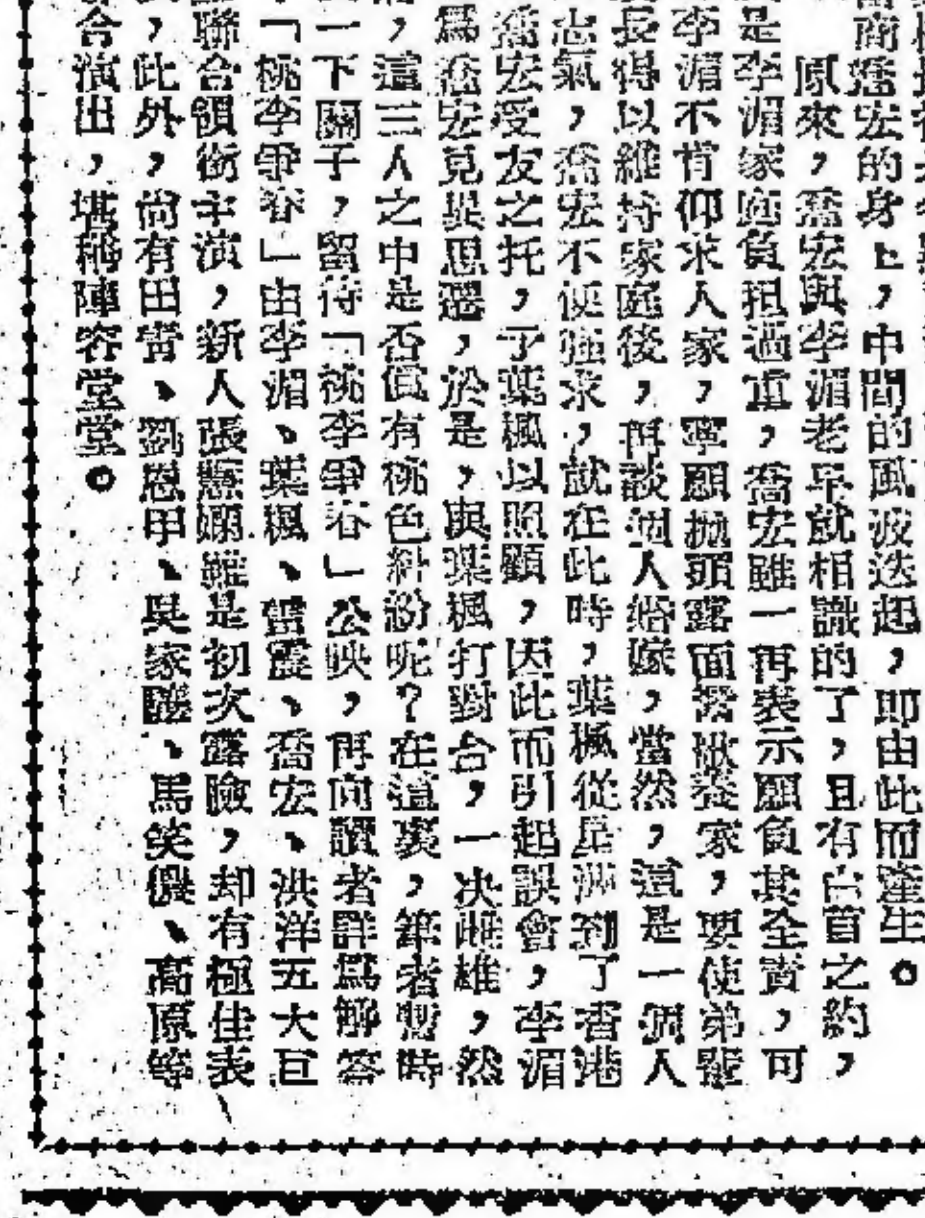 商喬宏的身上，中間的風波迭起，即由此而產生。
原來，喬宏與李湄老早就相識的了，且有白首之約，
是李湄家庭負担過重，喬宏雖一再表示願負其全責，可
李湄不肯仰求人家，寧願拋頭露面養家，要使弟
長得以維持家庭後，再談個人婚嫁，當然，這是一個人
志氣，喬宏不便強求，就在此時，葉楓從星洲到了香港
喬宏受友之托，予葉楓以照顧，因此而引起誤會，李湄
爲喬宏見異思遷，於是，與葉楓打對台，一决雌雄，然
，這三人之中是否眞有桃色糾紛呢？在這裏，筆者暫時
一下關子，留待「桃李爭春」公映，再向讀者詳爲解答
「桃李爭春」由李湄、葉楓、雷震、喬宏、洪洋五大巨
聯合領銜主演，新人張慧嫻雖是初次露臉，却有極佳表
，此外，尚有田青、劉恩甲、吳家驤、馬笑儂、高原等
合演出，堪稱陣容堂堂。